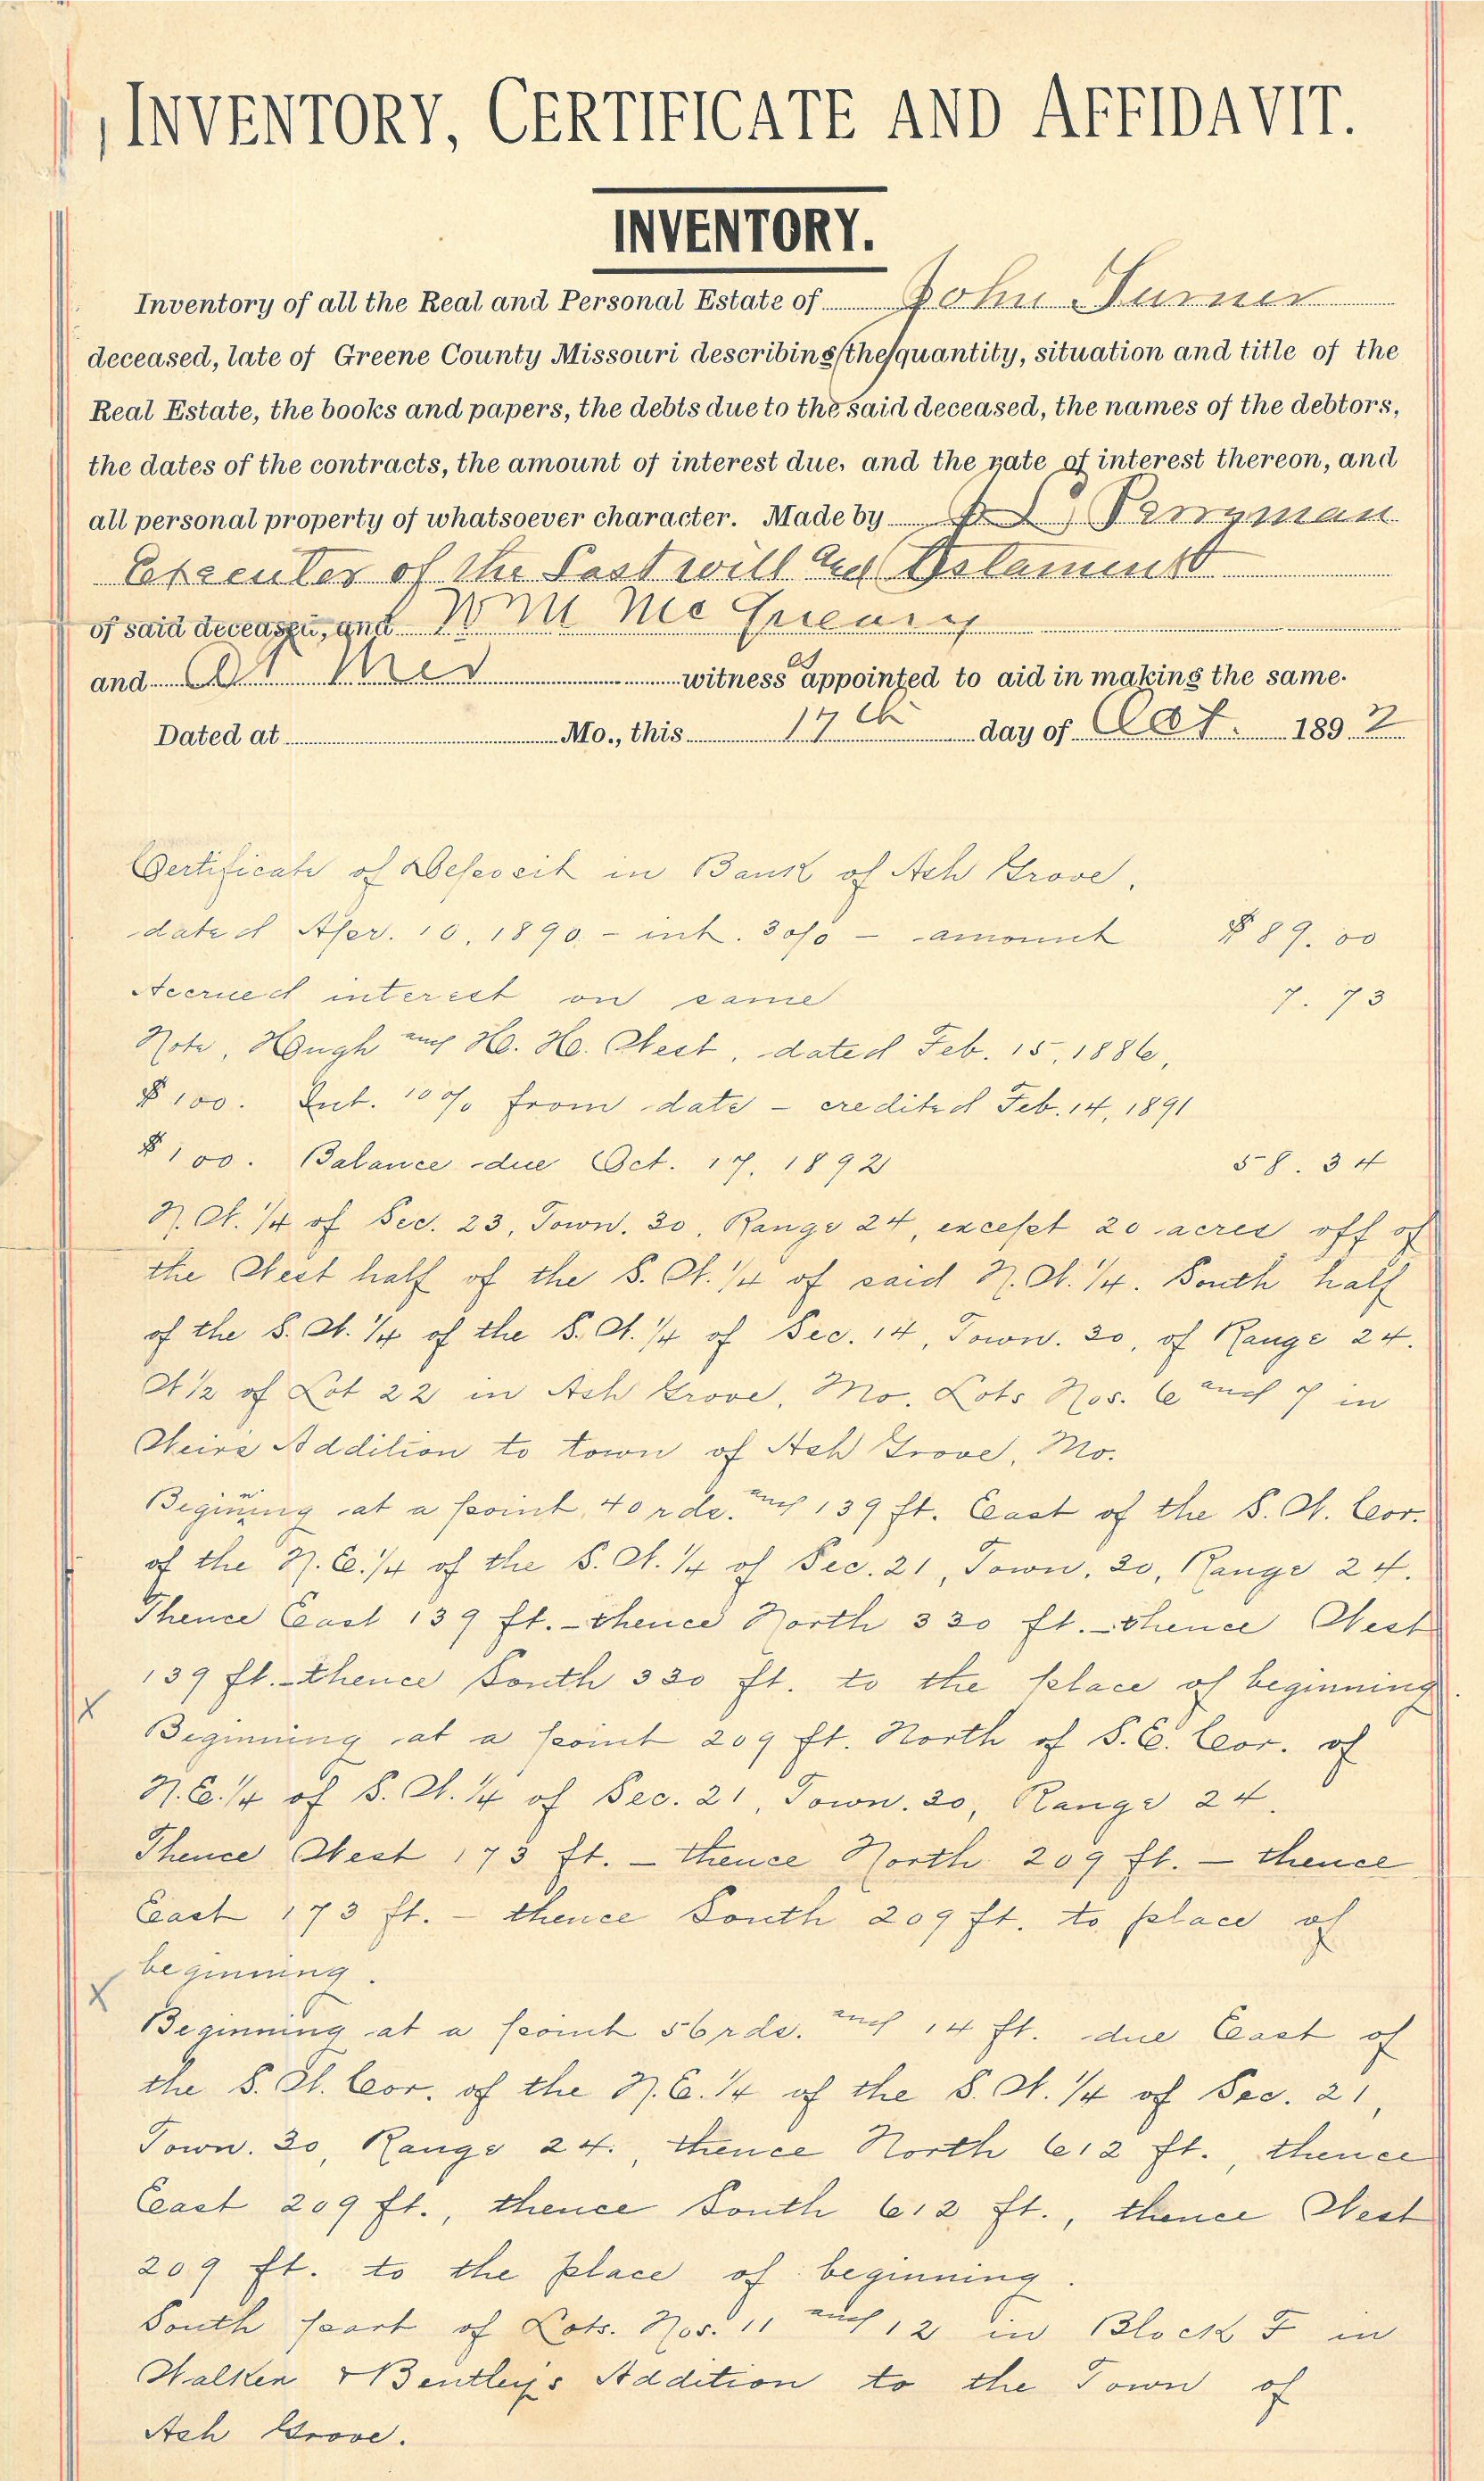 INVENTORY, CERTIFICATE AND AFFIDAVIT.
INVENTORY.
Inventory of all the Real and Personal Estate of John Turner
deceased, late of Greene County Missouri describing the quantity, situation and title of the
Real Estate, the books and papers, the debts due to the said deceased, the names of the debtors,
the dates of the contracts, the amount of interest due, and the rate of interest thereon, and
all personal property of whatsoever character. Made by Perryman
Executer of the Last will and Testament
of said deceased, and Wm
and witness appointed to aid in making the same.
Dated at Mo., this 17th day of Oct. 1892
Certificate of Deposit in Bank of Ash Grove,
dated Apr. 10, 1890 - int. 3o/o - amount $89.00
Accrued interest on same 7.73
Note, Hough and H. H. West, dated Feb. 15, 1886,
$100. Int. 10% from date - credited Feb. 14, 1891
$100. Balance due Oct. 17, 1892 58.34
N.W. 1/4 of Sec. 23, Town. 30, Range 24, except 20 acres off of
the West half of the S.W. 1/4 of said N.W. 1/4. South half
of the S.W. 1/4 of the S.W. 1/4 of Sec. 14, Town. 30, of Range 24.
W 1/2 of Lot 22 in Ash Grove, Mo. Lots Nos. 6 and 7 in
Weirs Addition to town of Ash Grove, Mo.
Begining at a point 40 rds. and 139 ft. East of the S.W. Cor.
of the N.E. 1/4 of the S.W. 1/4 of Sec. 21, Town. 30, Range 24.
Thence East 139 ft. - thence North 330 ft. - thence West
139 ft. - thence South 330 ft. to the place of beginning.
X
Beginning at a point 209 ft. North of S.E. Cor. of
N.E. 1/4 of S.W. 1/4 of Sec. 21, Town. 30, Range 24.
Thence West 173 ft. - thence North 209 ft. - thence
East 173 ft. - thence South 209 ft. to place of
beginning.
X
Beginning at a point 56 rds. and 14 ft. due East of
the S.W. Cor. of the N.E. 1/4 of the S.W. 1/4 of Sec. 21,
Town. 30, Range 24., thence North 612 ft., thence
East 209 ft., thence South 612 ft., thence West
209 ft. to the place of beginning.
South part of Lots. Nos. 11 and 12 in Block F in
Walken & Bentley's Addition to the Town of
Ash Grove.